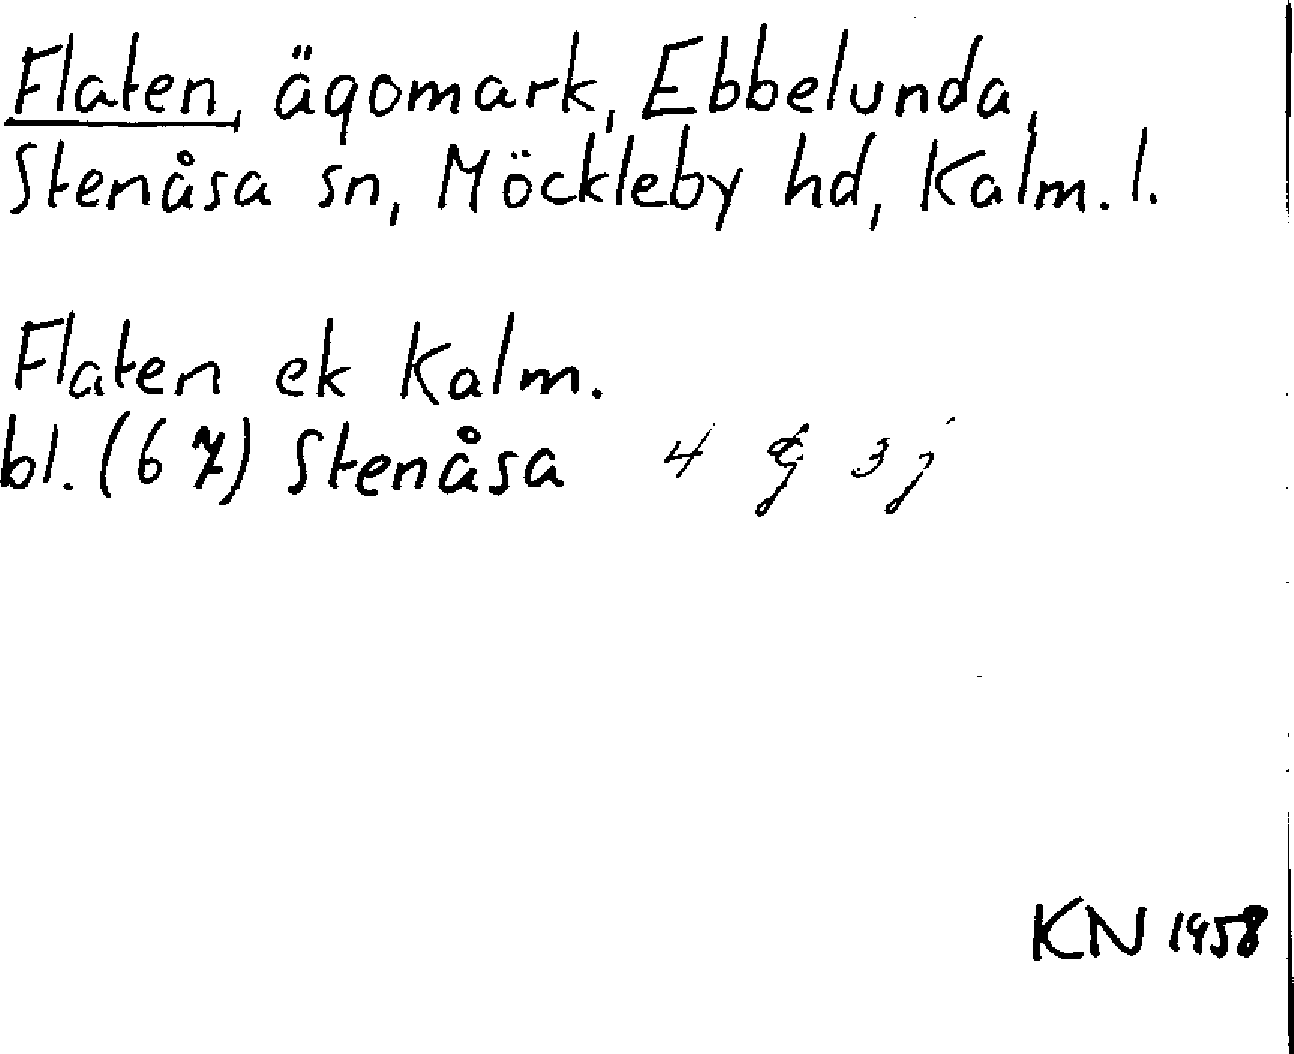 Flaten, ägomark, Ebbelunda,
Stenåsa sn, Möckleby hd, Kalm. l.
Flaten ek Kalm.
bl. (67) Stenåsa 4 g 3 j
KN 1958